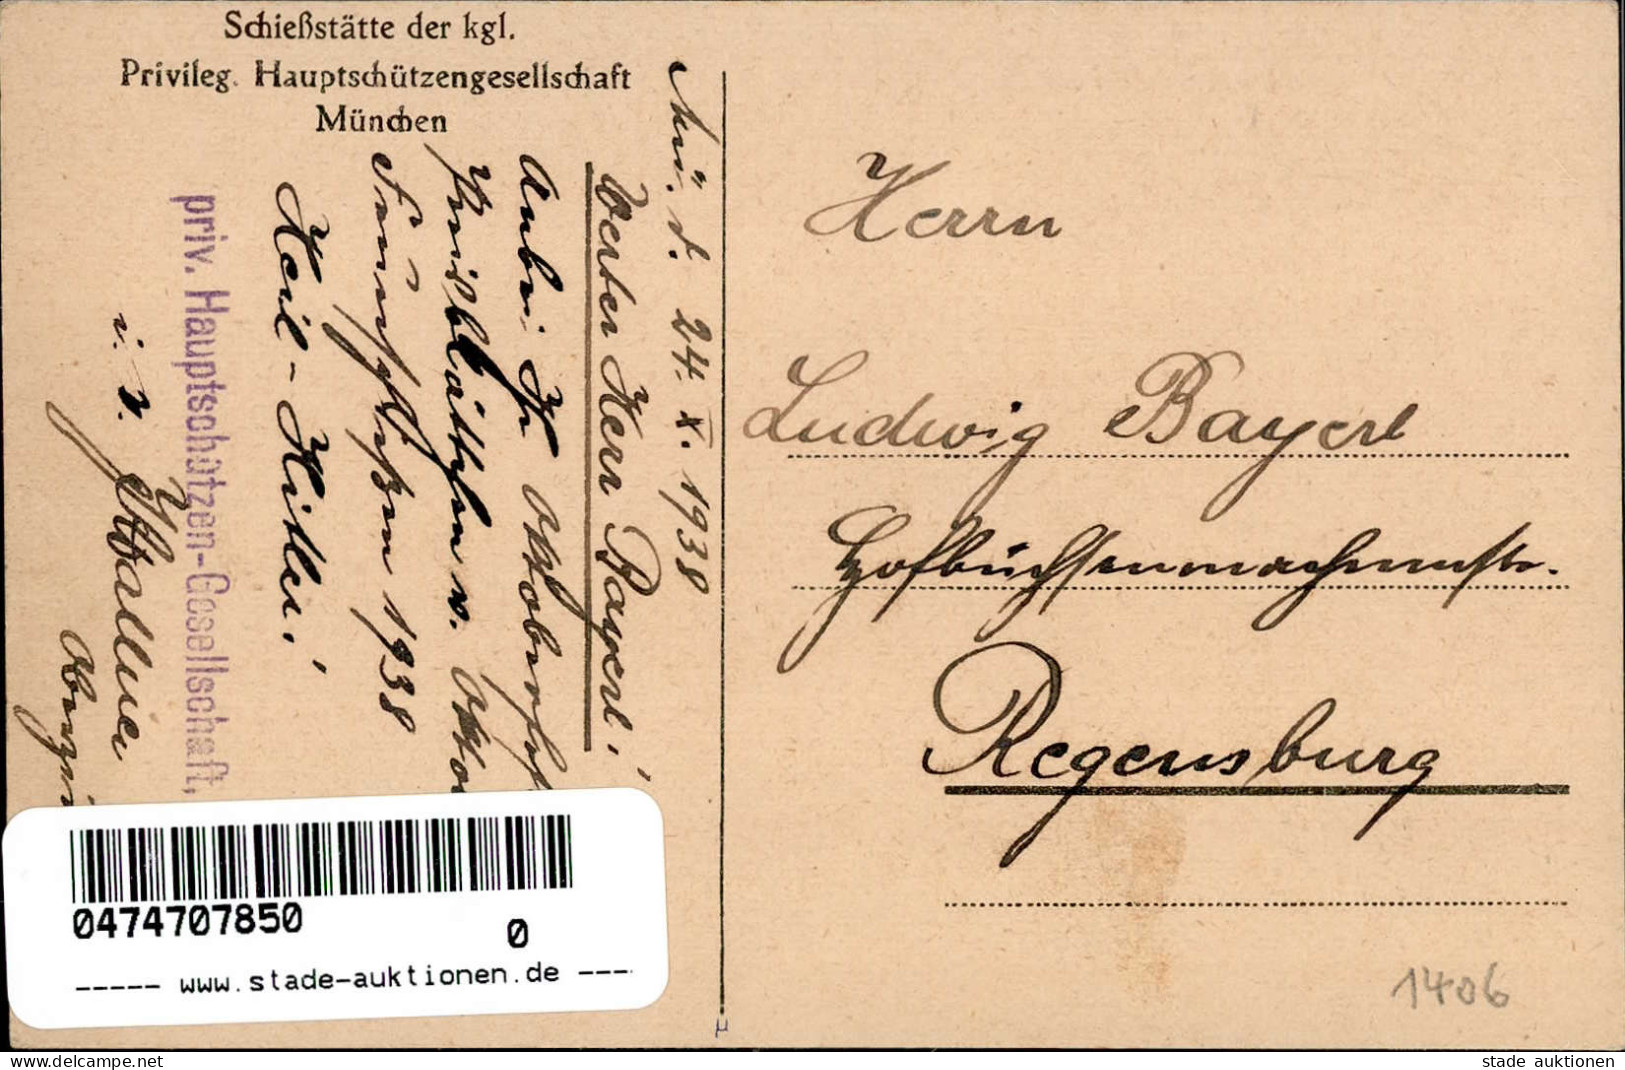 Schießstätte der kgl.
Privileg. Hauptschützengesellschaft
München
Mü. d. 24. X. 1938
Werter Herr Bayerl!
Anbei Ihr Oktoberfest
Preisblättchen v. Okto
1938
Heil-Hitler!
priv. Hauptschützen-Gesellschaft,
i. V.
Herrn
Ludwig Bayerl
Hofbüchsenmachermstr.
Regensburg
0474707850
0
----- www.stade-auktionen.de ----
1406
www.delcampe.net
stade_auktionen